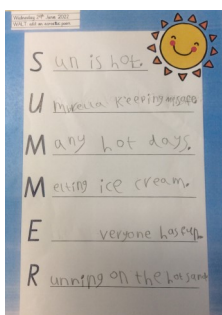 Wednesday 29th June 2022
W.A.L.T. write an acrostic poem.
Sun is hot.
Umbrella keeping
Many hot days.
Melting ice cream.
Everyone has fun.
Running on the hot sand